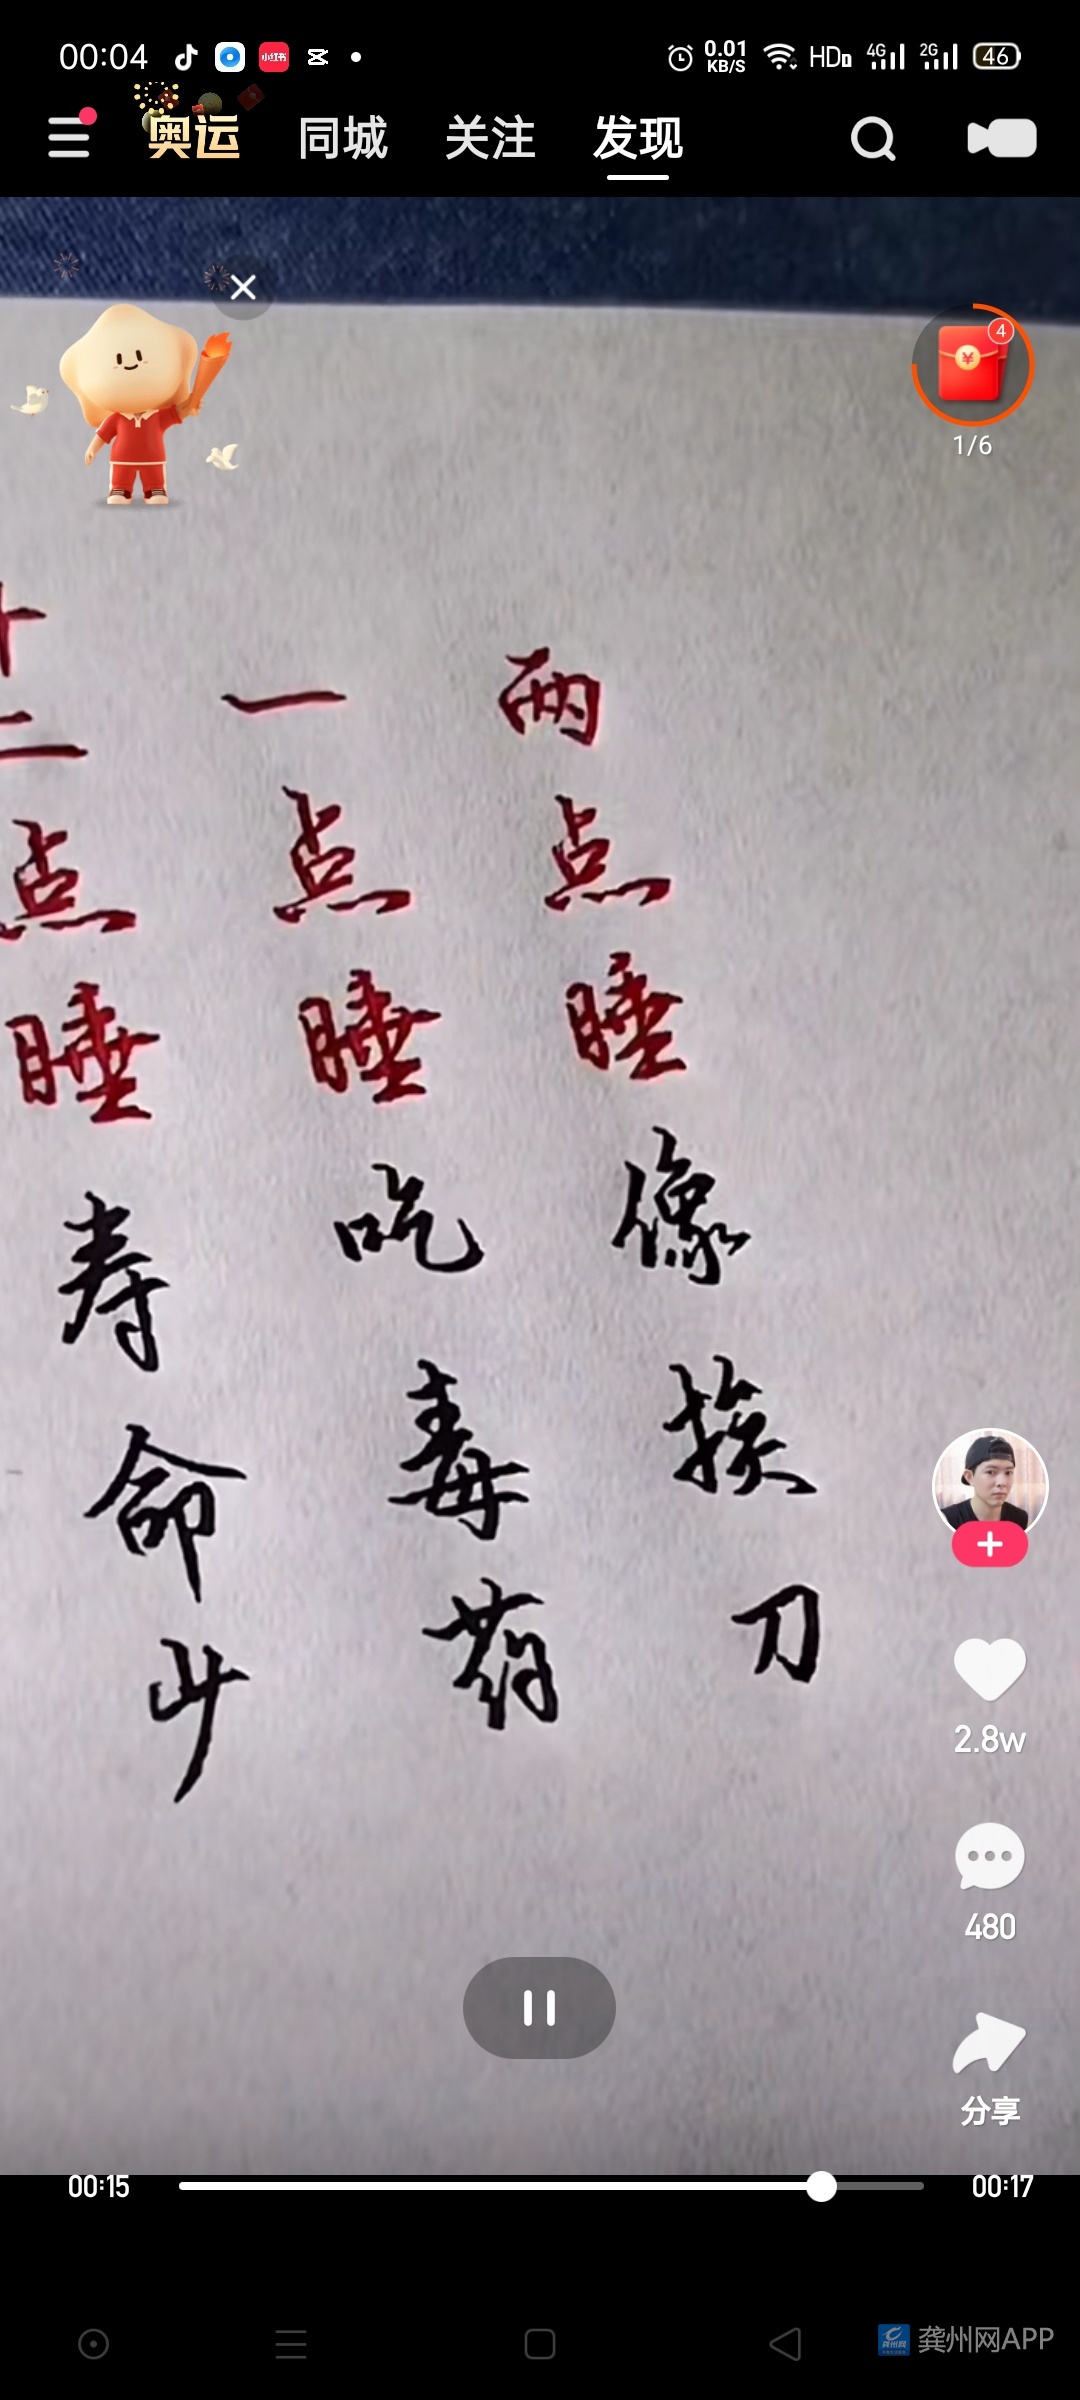 00:04
小红书
0.01 KB/S
HD
4G
2G
46
奥运 同城 关注 发现
4
1/6
十二点睡寿命少
一点睡吃毒药
两点睡像挨刀
2.8w
480
分享
00:15
00:17
龚州网APP